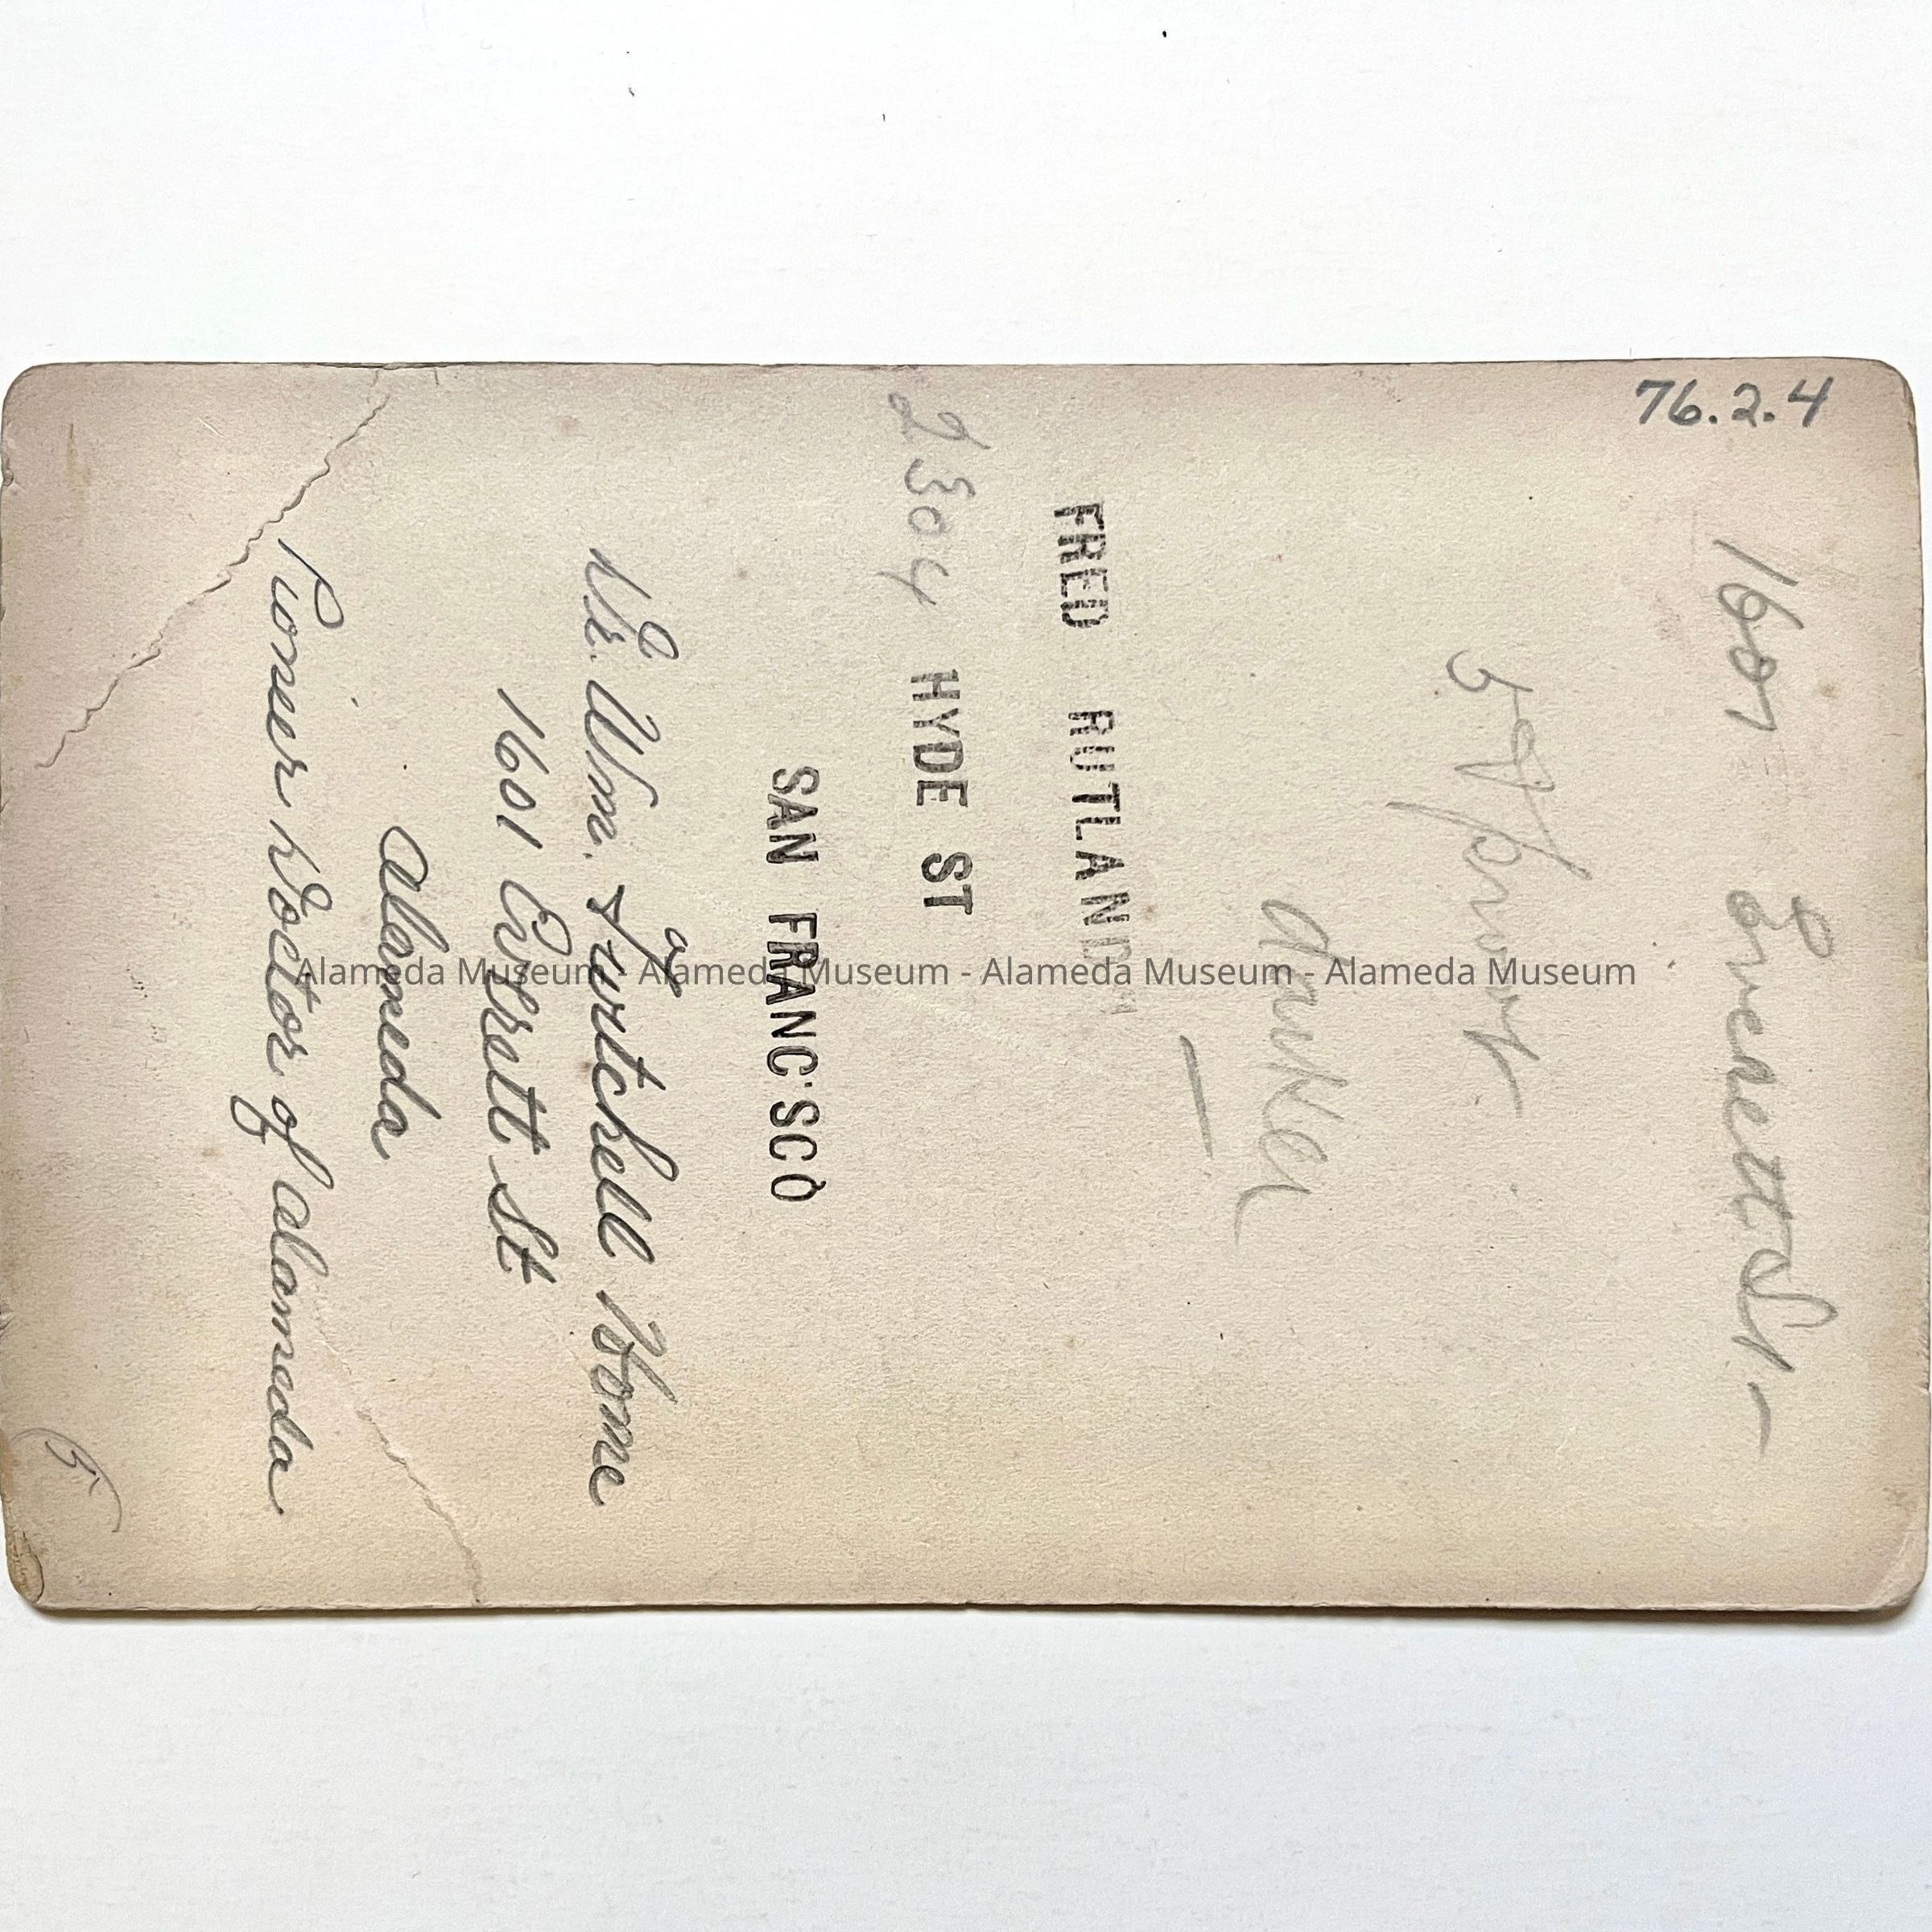 76.2.4
1601 Everett St —
5 proof
darker
FRED RUTLAND
2304 HYDE ST
SAN FRANC'SCO
of
Dr. Wm. Lurtchell Home
1601 Everett St
Alameda
Pioneer Doctor of Alameda
5
Alameda Museum - Alameda Museum - Alameda Museum - Alameda Museum